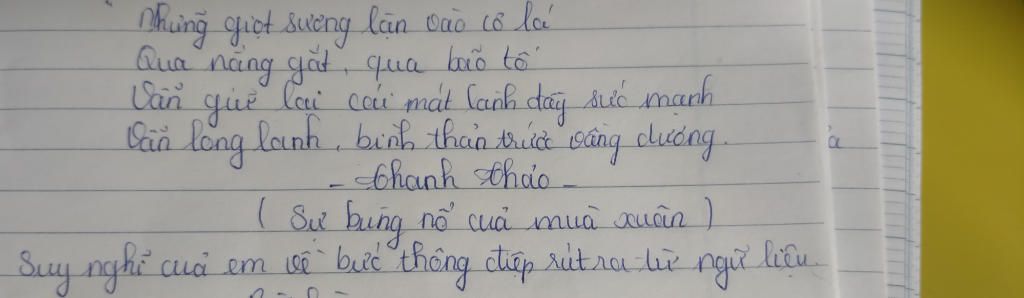 Những giọt sương lăn vào cỏ lá
Qua nắng gắt, qua bão tố
Vẫn giữ lại cái mát lành đầy sức mạnh
Vẫn long lanh, bình thản trước vầng dương.
- Thanh Thảo -
( Sự bùng nổ của mùa xuân )
Suy nghĩ của em về bức thông điệp rút ra từ ngữ liệu.